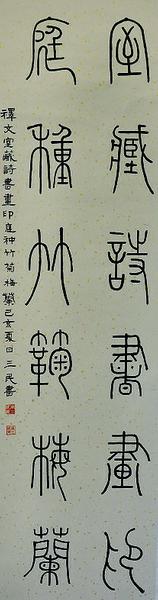 室藏詩書畫印
庭種竹菊梅蘭
釋文室藏詩書畫印庭种竹菊梅蘭己亥夏日三民書